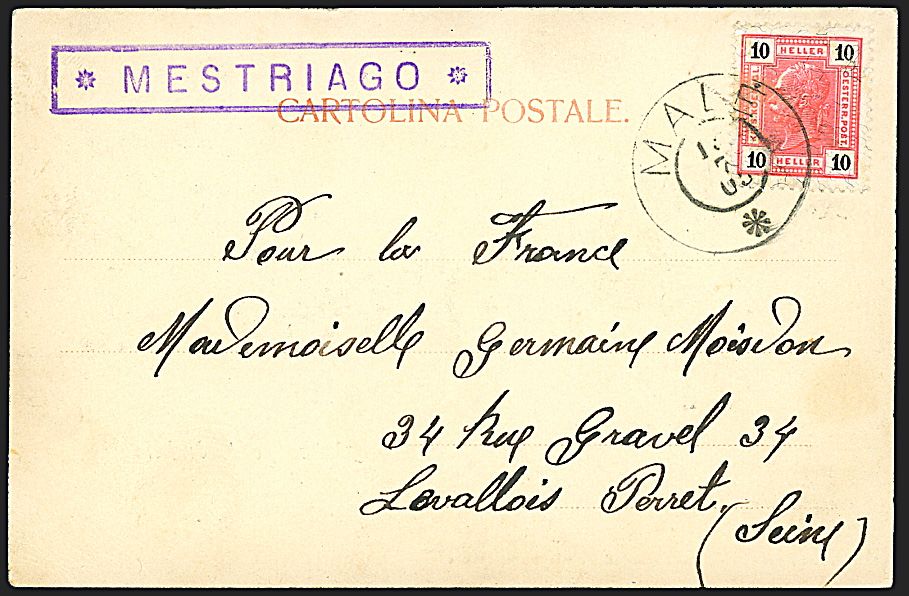 * MESTRIAGO *
CARTOLINA POSTALE.
10 HELLER 10
OESTERR. POST.
10 HELLER 10
MALÈ
Pour la France
Mademoiselle Germaine Moisdon
34 Rue Gravel 34
Levallois Perret.
(Seine)